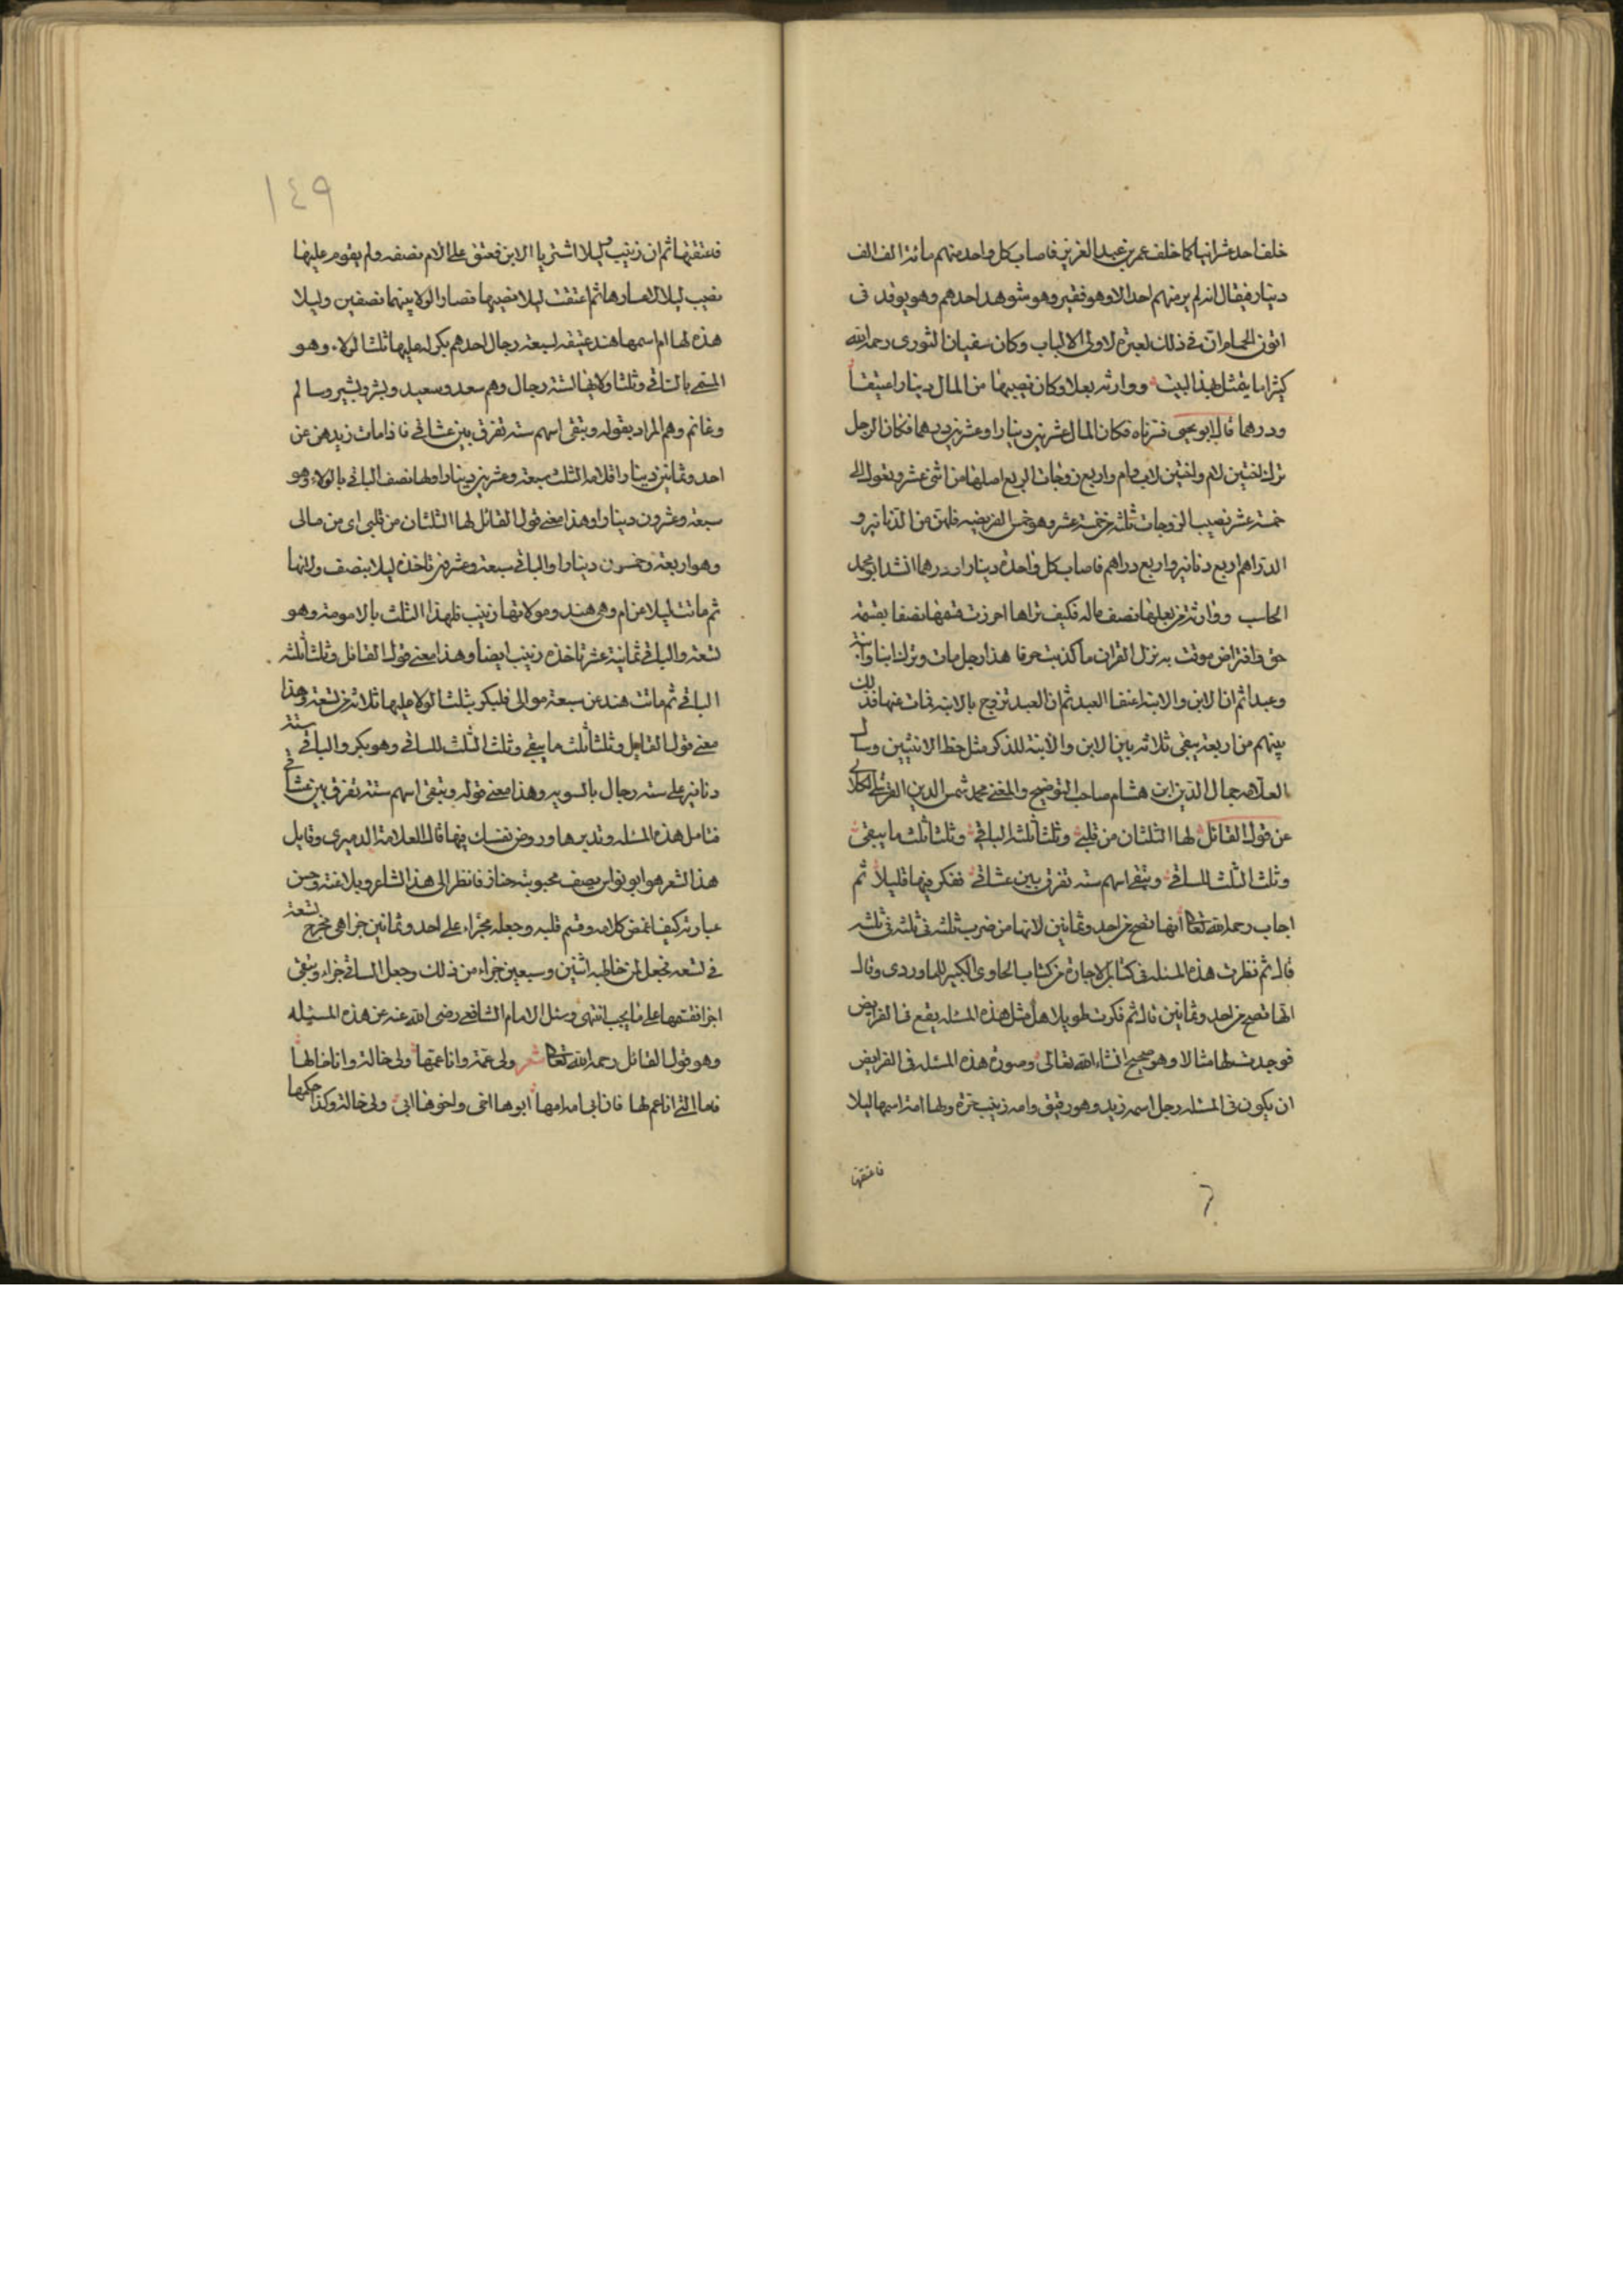 خلف احد عشر ابنا كما خلف عمر بن عبد العزيز فاصاب كل واحد منهم مائة الف الف
دينار فيقال انه لم ير منهم احد الا وهو فقير وهو شوهد احدهم وهو يوقد فى
اتون الحمام وان فى ذلك لعبرة لاولى الالباب وكان سفيان الثورى رحمه الله
كثيرا ما يتمثل بهذا البيت ووارثه بعلا وكان نصيبها من المال دينارا عتيقا
ودرهما قال ابو يحيى فسرناه فكان المال عشرين دينارا وعشرين درهما فكان الرجل
ترك اختين لام واختين لاب وام واربع زوجات الربع اصلها من اثنى عشر وتعول الى
خمسة عشر نصيب الزوجات ثلثه من خمسة عشر وهو خمس الفريضه فلهن من الدنانير و
الدراهم اربع دنانير واربع دراهم فاصاب كل واحدة دينارا ودرهما انشد ابو محمد
الحاسب ووارثة من بعلها نصف ماله فكيف تراها احرزت قسمها نصفا بقسمة
حق وافتراض موقت به نزل القران ما كذبت حرفا هذا رجل مات وترك ابنا وابنة
وعبدا ثم ان الابن والابنة اعتقا العبد ثم ان العبد تزوج بالابنة فمات عنها فذلك
بينهم من اربعة يبقى ثلاثه بين الابن والابنة للذكر مثل حظ الانثيين وسأل
العلامه جمال الدين ابن هشام صاحب التوضيح والمغنى محمد شمس الدين القرشى الكلائى
عن قول القائل لها الثلثان من قلبى وثلثا ثلثه الباقى وثلثا ثلث ما يبقى
وثلث الثلث للساقى ويبقى اسهم سته تفرق بين عشاقى ففكر فيها قليلا ثم
اجاب رحمه الله تعالى انها تصح من احد وثمانين لانها من ضرب ثلثه فى ثلثه فى ثلثه
قال ثم نظرت هذه المسئله فى كتاب الاجارة من كتاب الحاوى الكبير للماوردى وقال
انها تصح من احد وثمانين قال ثم فكرت طويلا هل مثل هذه المسئله يقع فى الفرايض
فوجدت لها مثالا وهو صحيح ان شاء الله تعالى وصورة هذه المسئله فى الفرايض
ان يكون فى المسئله رجل اسمه زيد وهو رقيق وامه زينب حرة ولها امة اسمها ليلا
فاعتقتها
١٤٩
فعتقتها ثم ان زينب وليلا اشتريا الابن فعتق على الام نصفه ولم يقوم عليها
نصيب ليلا لاعسارها ثم اعتقت ليلا نصيبها فصار الولا بينهما نصفين وليلا
هذه لها ام اسمها هند عتيقه لسبعة رجال احدهم بكر له عليها ثلث الولاء وهو
المسمى بالساقى وثلثا ولائها لستة رجال وهم سعد وسعيد وبشر وبشير وسالم
وغانم وهم المراد بقوله ويبقى اسهم سته تفرق بين عشاقى فاذا مات زيد هن عن
احد وثمانين دينارا فلامه الثلث سبعة وعشرين دينارا ولها نصف الباقى بالولاء وهو
سبعة وعشرون دينارا وهذا معنى قول القائل لها الثلثان من قلبى اى من مالى
وهو اربعة وخمسون دينارا والباقى سبعة وعشرين تاخذه ليلا بنصف ولائها
ثم ماتت ليلا عن ام وهى هند ومولاتها زينب فلهذا الثلث بالامومة وهو
تسعة والباقى ثمانية عشر تاخذه زينب ايضا وهذا معنى قول القائل وثلثا ثلثه
الباقى ثم ماتت هند عن سبعة موالى فلبكر بثلث الولا عليها ثلاثه من تسعة وهذا
معنى قول القايل وثلثا ثلث ما يبقى وثلث الثلث للساقى وهو بكر والباقى ستة
دنانير على سته رجال بالسويه وهذا معنى قوله ويبقى اسهم ستة تفرق بين عشاقى
فتامل هذه المسئله وتدبرها وروض نفسك فيها قال العلامة الدميرى وقايل
هذا الشعر هو ابو نواس يصف محبوبته جناز فانظر الى هذا الشاعر وبلاغته وحسن
عبارته كيف اغمض كلامه وقسم قلبه وجعله مجزاء على احد وثمانين جزا هى مخرج تسعة
فى تسعة فجعل لمن خاطبه اثنين وسبعين جزاء من ذلك وجعل للساقى جزاء ويبقى
اجزا فقسمها على ما يجب انتهى وسئل الامام الشافعى رضى الله عنه عن هذه المسئله
وهو قول القائل رحمه الله تعالى شعر ولى عمة وانا عمها ولى خالة وانا خالها
فاما التى انا عم لها فان ابى امه امها ابوها اخى واخوها ابى ولى خالة وكذا حكمها